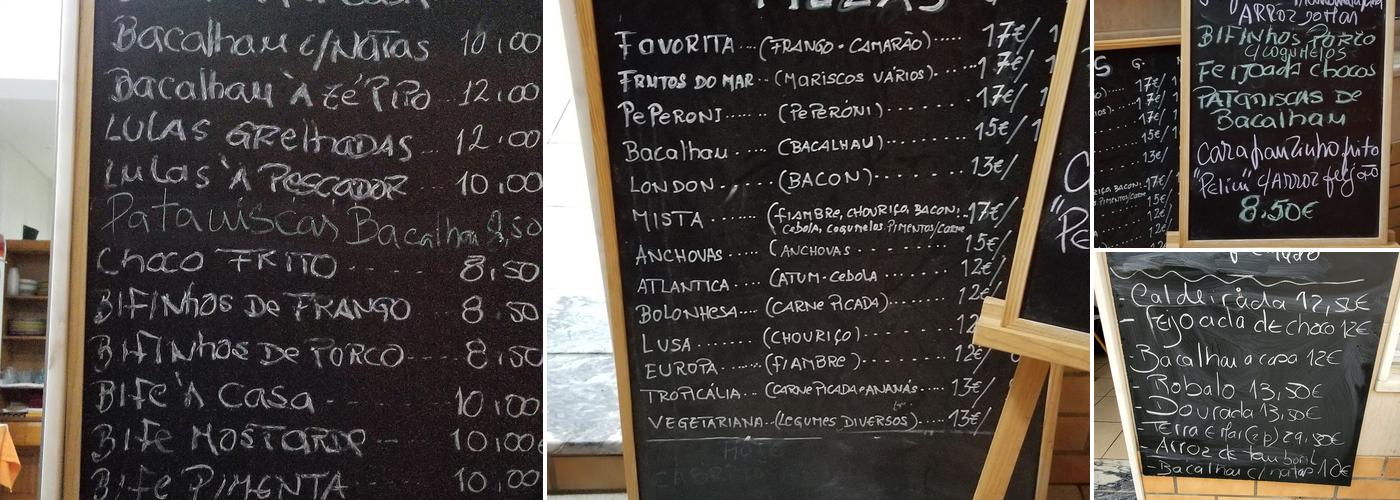 Bacalhau c/Natas 10,00
Bacalhau À Zé PiPo 12,00
LULAS GRelhADAS 12,00
Lulas À PESCADOR 10,00
Pataniscas Bacalhau 8,50
Choco FRITO ---- 8,50
BIFINHOS De FRANGO 8,50
BIFINhos De PORCO -- 8,50
BIFe À Casa --- 10,00
BIFe MOSTARDA -- 10,00€
BIFe PIMENTA 10,00
PIZZAS
FAVORITA ... (FRANGO · CAMARÃO) ..... 17€/
FRUTOS DO MAR .. (MARISCOS VÁRIOS) ..... 17€/
PePERONI ..... (PePERÓNI) ....... 17€/
Bacalhau ..... (BACALHAU) ...... 15€/
LONDON ...... (BACON) ........ 13€/
MISTA ....... (FIAMBRE, CHOURIÇO, BACON: ..17€/
Cebola, cogumelos. PIMENTOS/CARNE
ANCHOVAS .... (ANCHOVAS ........ 15€/
ATLANTICA .... (ATUM-Cebola ...... 12€/
BOLONHESA.... (CARNe PICADA) ...... 12€/
LUSA ..... (CHOURIÇO) ....... 12
EUROPA ..... (FIAMBRe) ....... 12€/
TROPICÁLIA... (CARNe PICADA e ANANÁS..... 13€/
VEGETARIANA (LEGUMES DIVERSOS)..... 13€/
"Pe
S G.
17€/
17€/
17€/
15€/
13€/
17€/
15€/
12€/
12€/
ARROZ
BIFINhos PORCO
c/COGUMELOS
FeIJoada Chocos
PATANISCAS DE
Bacalhau
Carapauzinho frito
"Pelim" c/ARROZ feijão
8.50€
- Caldeirada 12,50€
- Feijoada de choco 12€
- Bacalhau a casa 12€
- Robalo 13,50€
- Dourada 13,50€
- Terra e Mar (2p) 29,50€
- Arroz de tamboril
- Bacalhau c/ natas 10€